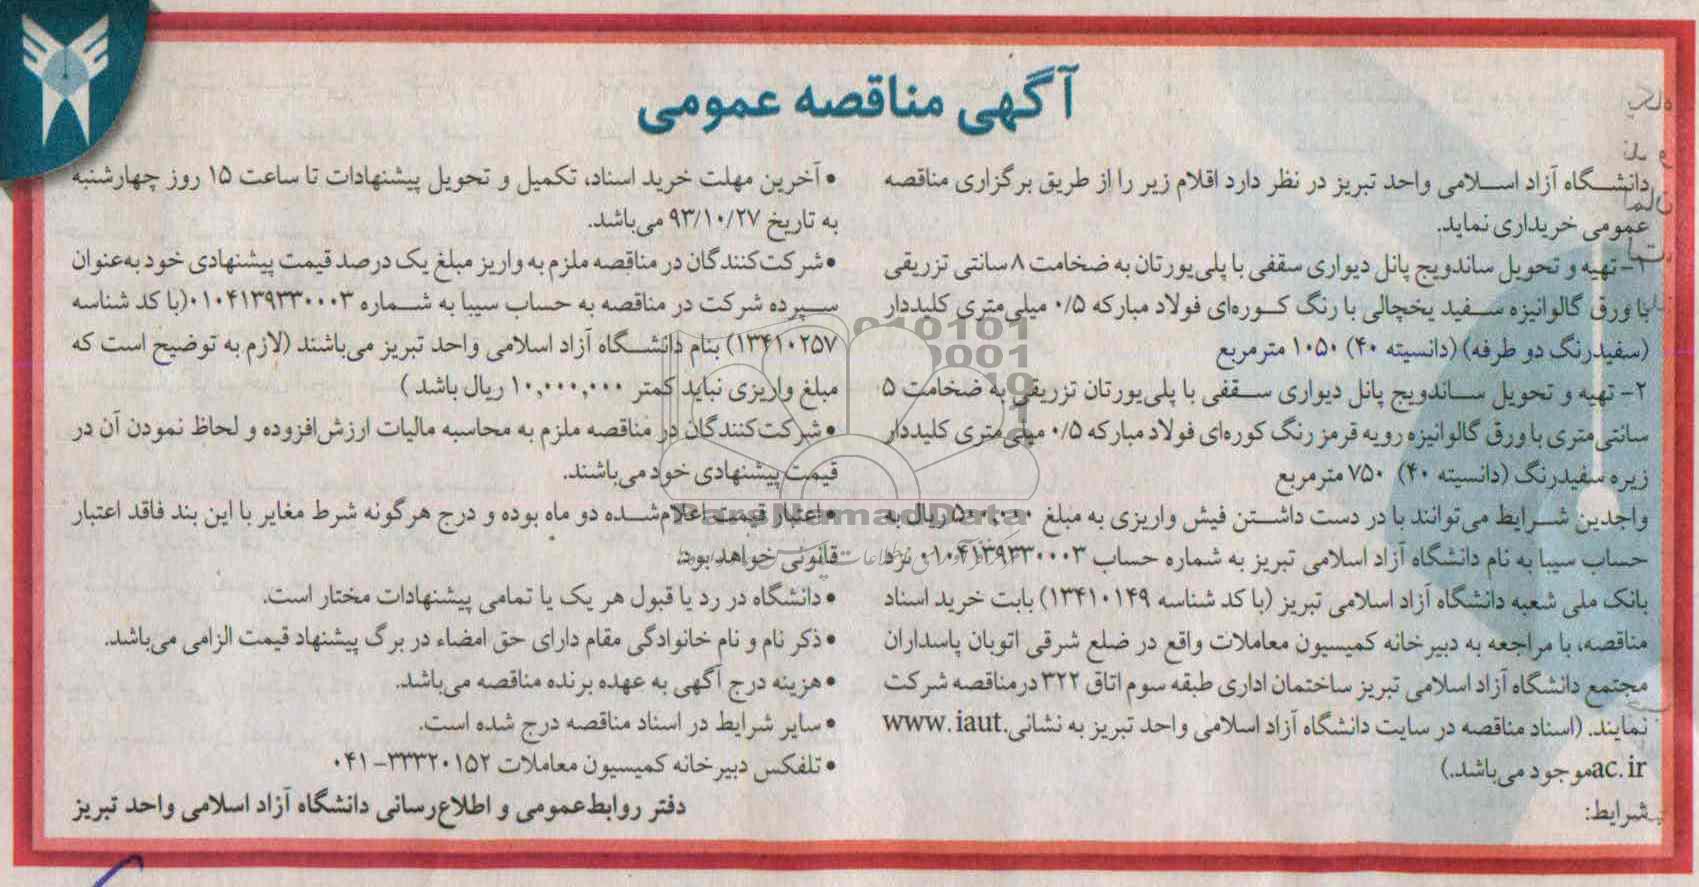 آگهی مناقصه عمومی
دانشگاه آزاد اسلامی واحد تبریز در نظر دارد اقلام زیر را از طریق برگزاری مناقصه
عمومی خریداری نماید.
۱- تهیه و تحویل ساندویچ پانل دیواری سقفی با پلی‌یورتان به ضخامت ۸ سانتی تزریقی
با ورق گالوانیزه سفید یخچالی با رنگ کوره‌ای فولاد مبارکه ۰/۵ میلی‌متری کلیددار
(سفیدرنگ دو طرفه) (دانسیته ۴۰) ۱۰۵۰ مترمربع
۲- تهیه و تحویل ساندویچ پانل دیواری سقفی با پلی‌یورتان تزریقی به ضخامت ۵
سانتی‌متری با ورق گالوانیزه رویه قرمز رنگ کوره‌ای فولاد مبارکه ۰/۵ میلی‌متری کلیددار
زیره سفیدرنگ (دانسیته ۴۰) ۷۵۰ مترمربع
واجدین شرایط می‌توانند با در دست داشتن فیش واریزی به مبلغ ۵۰۰،۰۰۰ ریال به
حساب سیبا به نام دانشگاه آزاد اسلامی تبریز به شماره حساب ۰۱۰۴۱۳۹۳۳۰۰۰۳ نزد
بانک ملی شعبه دانشگاه آزاد اسلامی تبریز (با کد شناسه ۱۳۴۱۰۱۴۹) بابت خرید اسناد
مناقصه، با مراجعه به دبیرخانه کمیسیون معاملات واقع در ضلع شرقی اتوبان پاسداران
مجتمع دانشگاه آزاد اسلامی تبریز ساختمان اداری طبقه سوم اتاق ۳۲۲ درمناقصه شرکت
نمایند. (اسناد مناقصه در سایت دانشگاه آزاد اسلامی واحد تبریز به نشانی www.iaut.
ac.ir موجود می‌باشد.)
شرایط:
• آخرین مهلت خرید اسناد، تکمیل و تحویل پیشنهادات تا ساعت ۱۵ روز چهارشنبه
به تاریخ ۹۳/۱۰/۲۷ می‌باشد.
• شرکت‌کنندگان در مناقصه ملزم به واریز مبلغ یک درصد قیمت پیشنهادی خود به‌عنوان
سپرده شرکت در مناقصه به حساب سیبا به شماره ۰۱۰۴۱۳۹۳۳۰۰۰۳ (با کد شناسه
۱۳۴۱۰۲۵۷) بنام دانشگاه آزاد اسلامی واحد تبریز می‌باشند (لازم به توضیح است که
مبلغ واریزی نباید کمتر ۱۰,۰۰۰,۰۰۰ ریال باشد )
• شرکت‌کنندگان در مناقصه ملزم به محاسبه مالیات ارزش‌افزوده و لحاظ نمودن آن در
قیمت پیشنهادی خود می‌باشند.
• اعتبار قیمت اعلام‌شده دو ماه بوده و درج هرگونه شرط مغایر با این بند فاقد اعتبار
قانونی خواهد بود.
• دانشگاه در رد یا قبول هر یک یا تمامی پیشنهادات مختار است.
• ذکر نام و نام خانوادگی مقام دارای حق امضاء در برگ پیشنهاد قیمت الزامی می‌باشد.
• هزینه درج آگهی به عهده برنده مناقصه می‌باشد.
• سایر شرایط در اسناد مناقصه درج شده است.
• تلفکس دبیرخانه کمیسیون معاملات ۳۳۳۲۰۱۵۲-۰۴۱
دفتر روابط‌عمومی و اطلاع‌رسانی دانشگاه آزاد اسلامی واحد تبریز
ParsNamadData